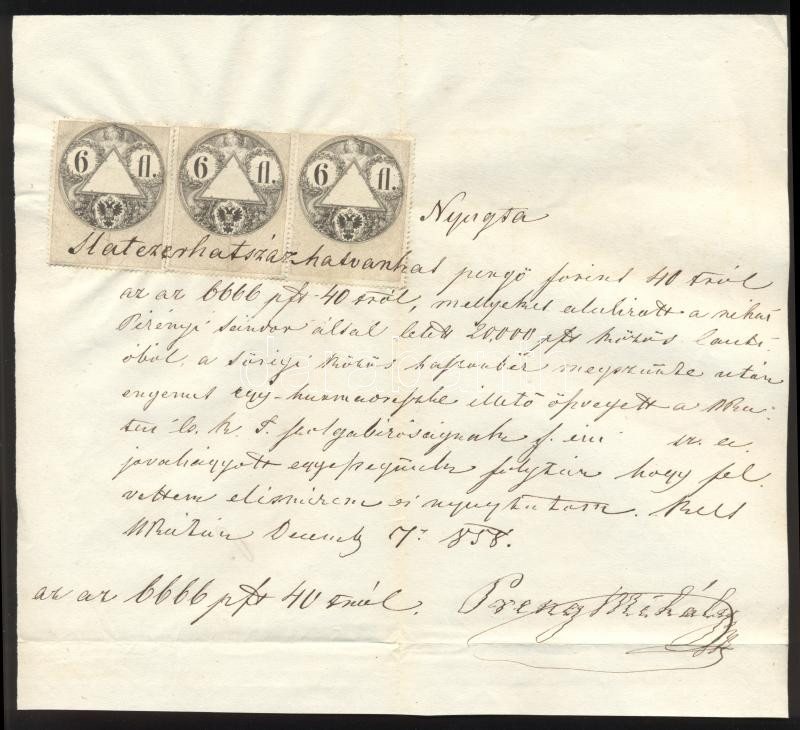 6 fl. 6 fl. 6 fl.
Nyugta
Hatezerhatszáz hatvanhat pengő forint 40 król
az az 6666 pft 40 król, mellyeket alulirott a néhai
Perényi Sándor által letett 20,000 pft közös
óból a közös haszonbér megszünte után
engemet egy harmadrészbe illető összegett a
szolgabiróságnak f. évi
jováhagyott egyességünk folytán hogy fel
vettem elismérem és nyugtatom. Kelt
Decemb 7. 858.
az az 6666 pft 40 król.
Mihály